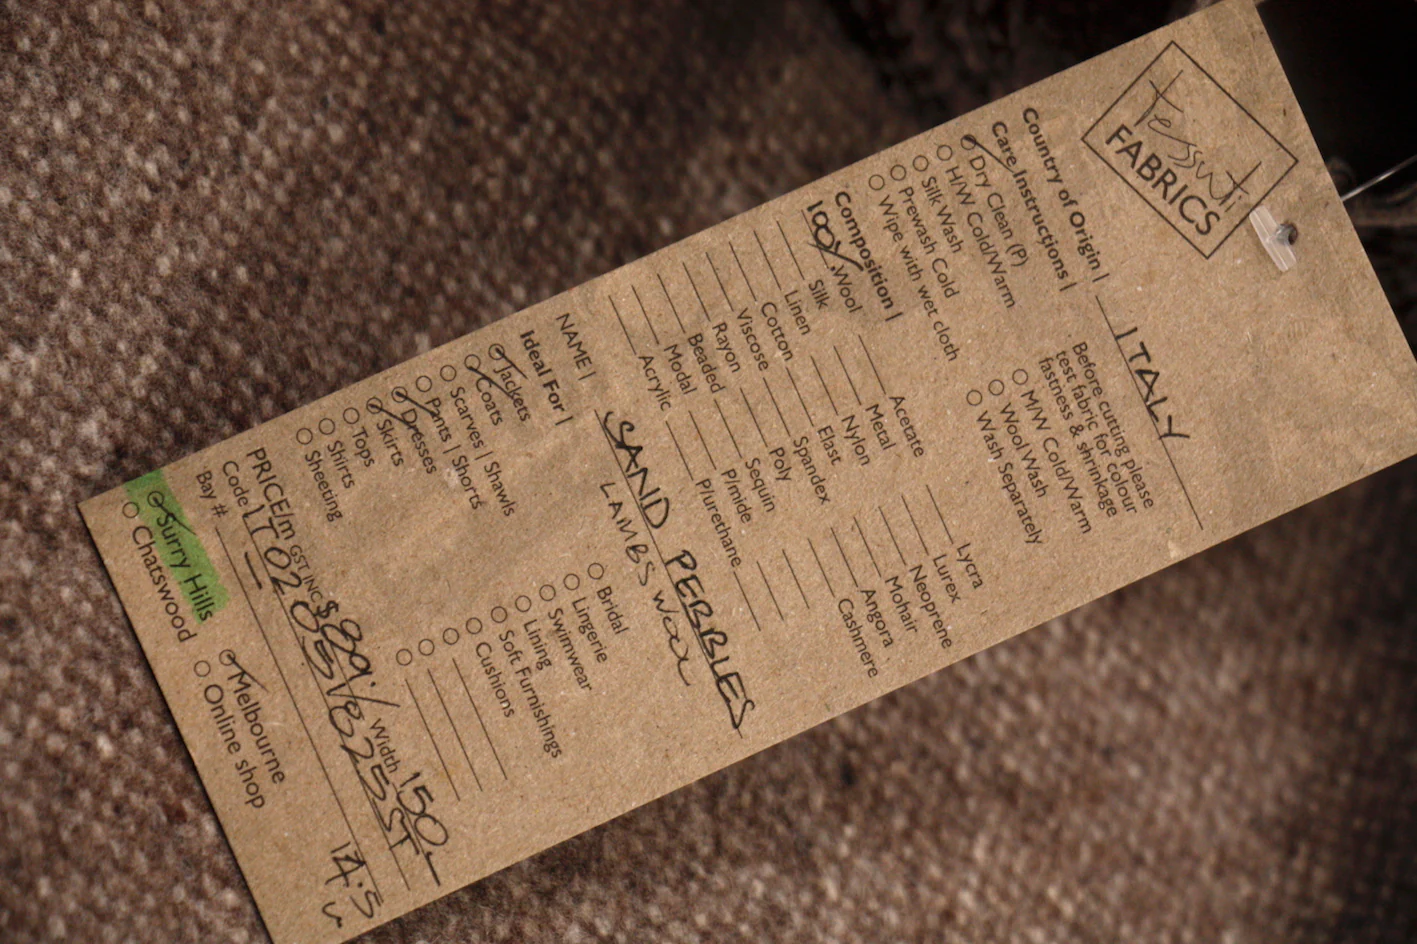 tessuti
FABRICS
Country of Origin | ITALY
Care Instructions |
Dry Clean (P)
H/W Cold/Warm
Silk Wash
Prewash Cold
Wipe with wet cloth
Before cutting please
test fabric for colour
fastness & shrinkage
M/W Cold/Warm
Wool Wash
Wash Separately
Composition |
100% Wool
Silk
Linen
Cotton
Viscose
Rayon
Beaded
Modal
Acrylic
Acetate
Metal
Nylon
Elast
Spandex
Poly
Sequin
P/mide
P/urethane
Lycra
Lurex
Neoprene
Mohair
Angora
Cashmere
NAME | SAND PEBBLES
LAMBS WOOL
Ideal For |
Jackets
Coats
Scarves | Shawls
Pants | Shorts
Dresses
Skirts
Tops
Shirts
Sheeting
Bridal
Lingerie
Swimwear
Lining
Soft Furnishings
Cushions
PRICE/m GST INC $89 Width 150
Code
Bay #
14.5
Surry Hills
Chatswood
Melbourne
Online shop